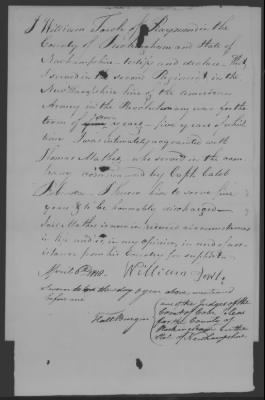 I William Fowle of Raymond in the
County of Rockingham and State of
Newhampshire - testify and declare - That
I served in the second Regiment in the
New Hampshire line of the American
Army in the Revolutionary war for the
term of years - five years of which
time I was intimately acquainted with
Thomas Mathes, who served in the com-
pany commanded by Capt. Caleb
I knew him to serve five
years & to be honorably discharged -
Said Mathes is now in reduced circumstances
in life and is, in my opinion, in need of as-
sistance from his Country for support -
April 6th 1818. William Fowle
Sworn to the day & year above mentioned
before me
Hall Burgin one of the Judges of the
Court of Com. Pleas
for the County of
Rockingham in the
State of Newhampshire